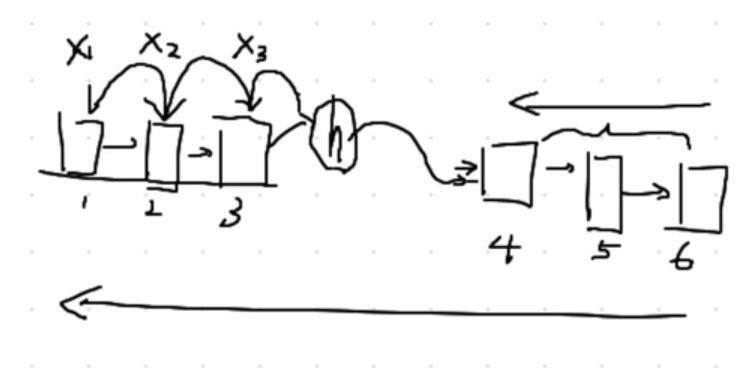 X1 X2 X3
h
1 2 3
4 5 6